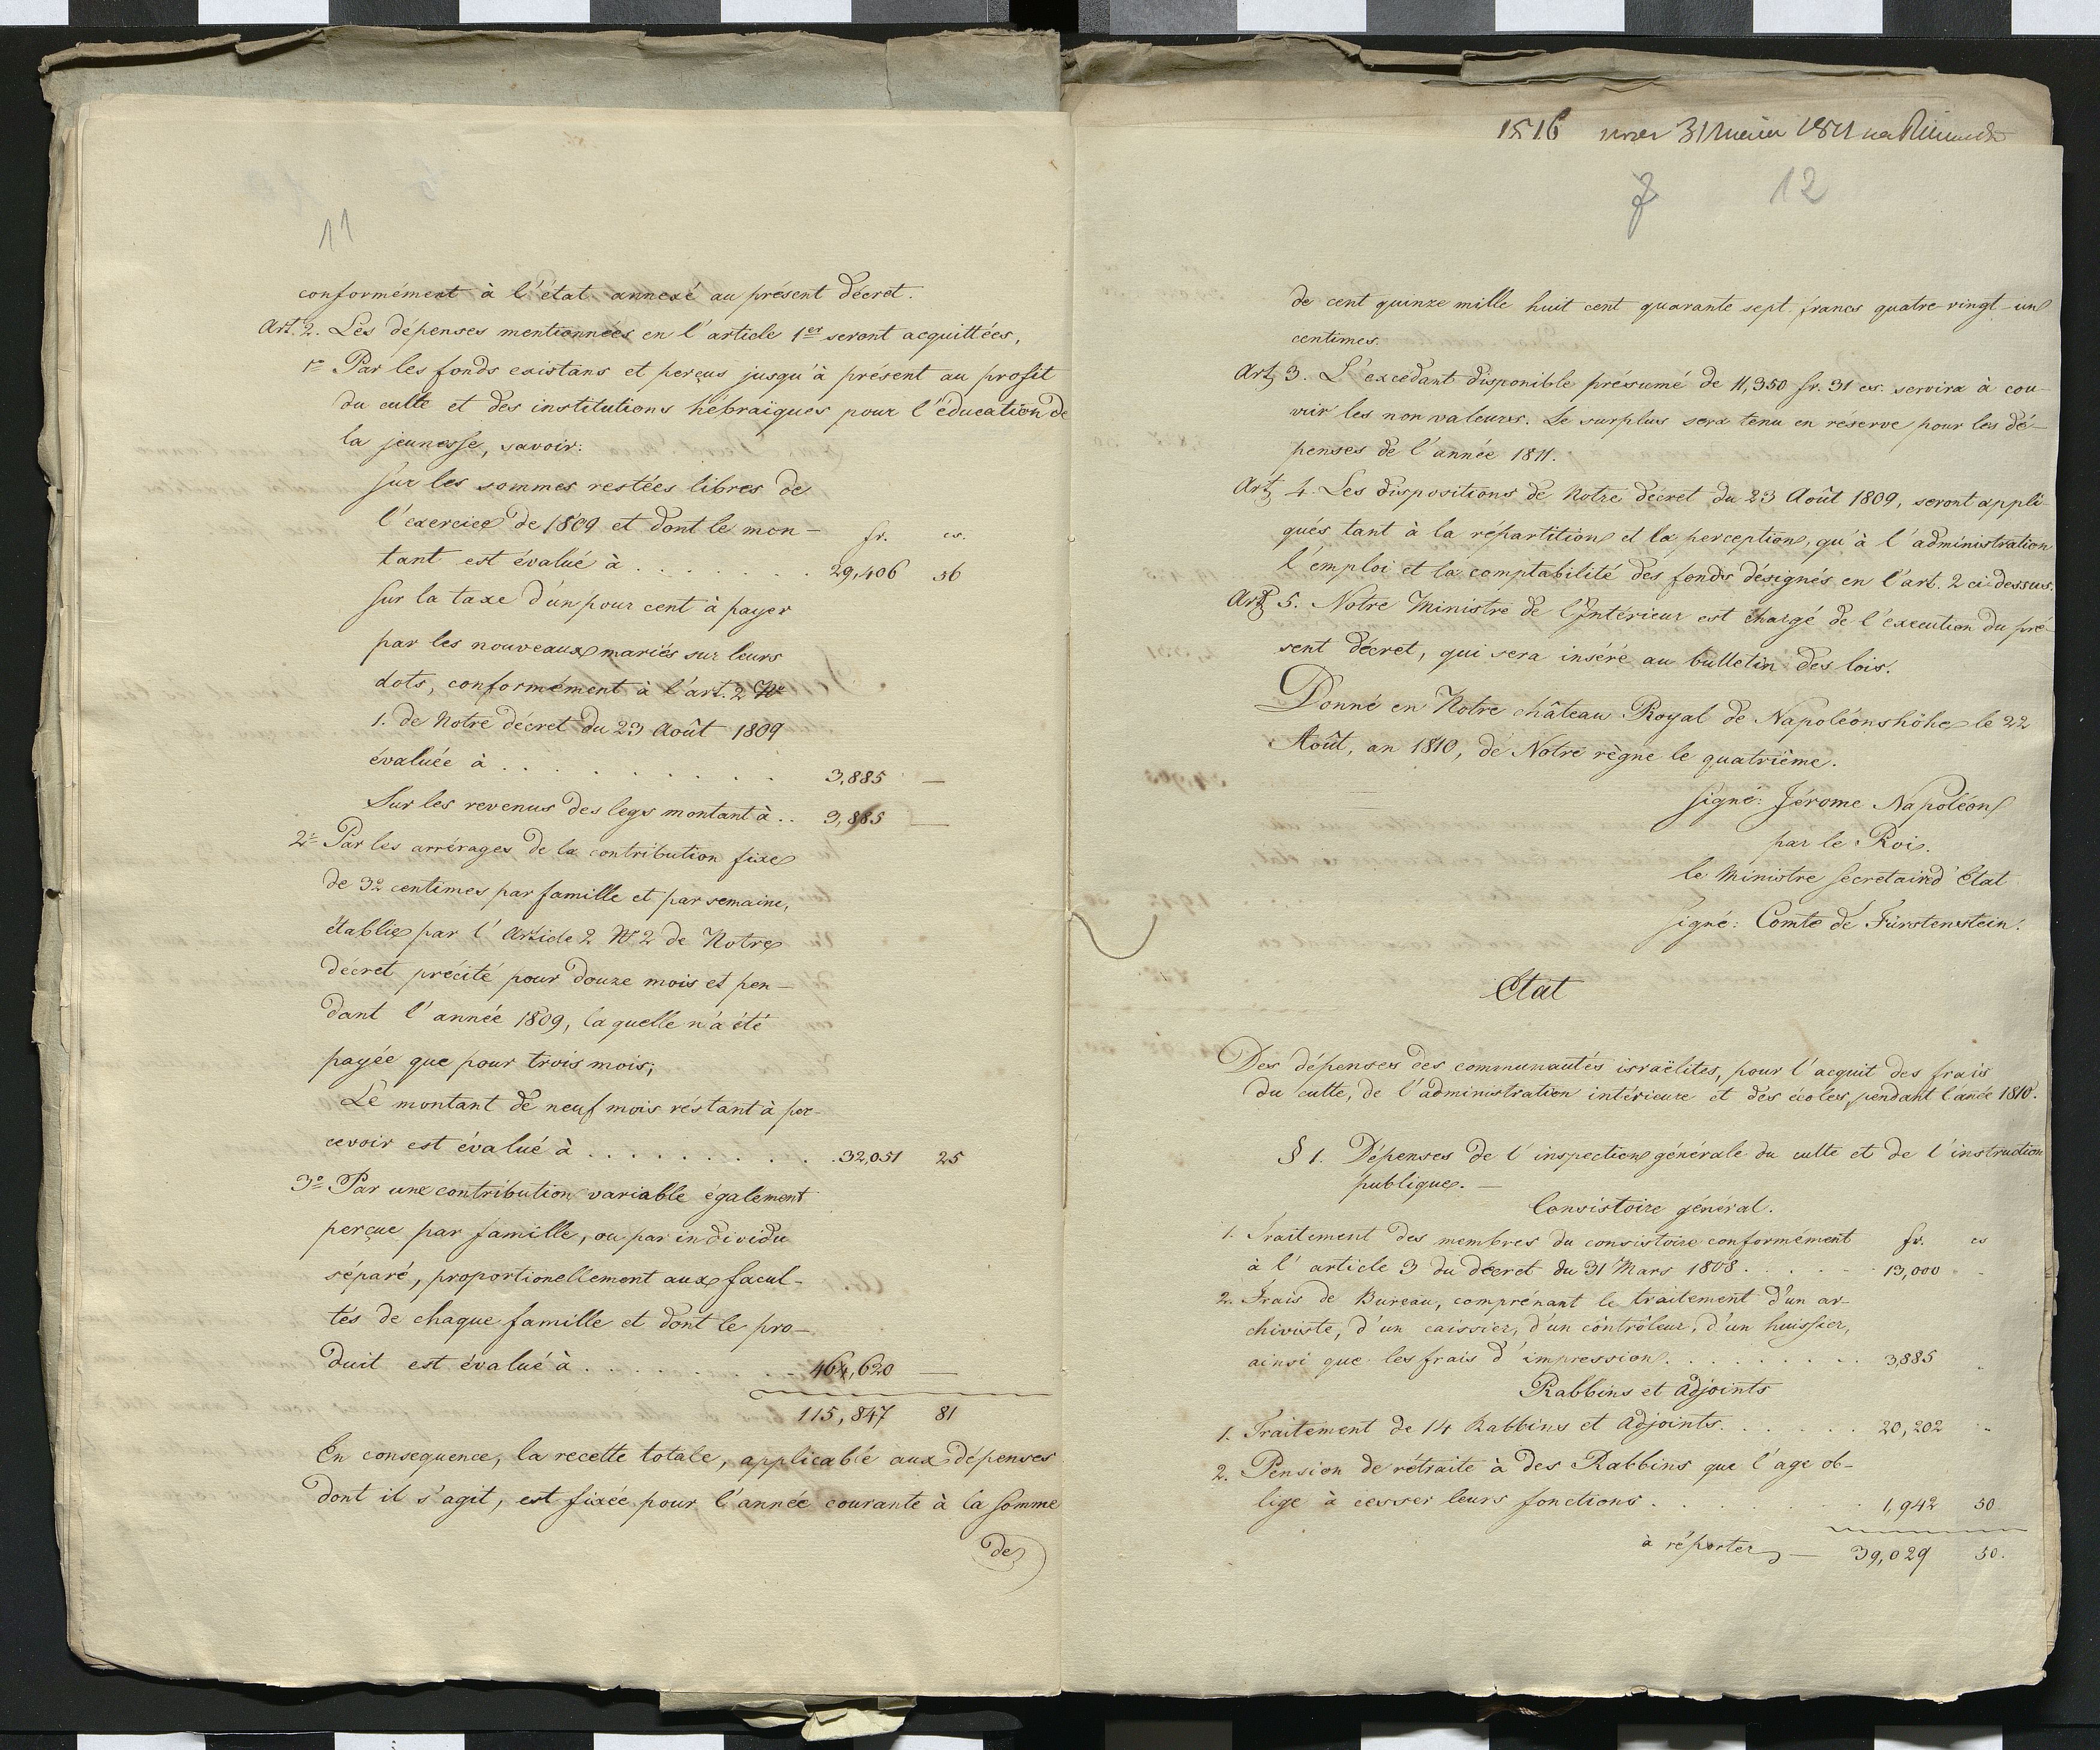 11
conformément à l'état annexé au présent décret.
Art. 2. Les dépenses mentionnées en l'article 1er seront acquittées,
1o Par les fonds existans et perçus jusqu'à présent au profit
du culte et des institutions hébraïques pour l'éducation de
la jeunesse, savoir:
Sur les sommes restées libres de
l'exercice de 1809 et dont le mon- fr. cs.
tant est évalué à . . . . . . . 29,406 56
Sur la taxe d'un pour cent à payer
par les nouveaux mariés sur leurs
dots, conformément à l'art. 2 No
1. de Notre décret du 23 Août 1809
évaluée à . . . . . . . . . . 3,885 —
Sur les revenus des legs montant à . . 3,885 —
2o Par les arrérages de la contribution fixe
de 30 centimes par famille et par semaine,
établie par l'Article 2 No 2 de Notre
décret précité pour douze mois et pen-
dant l'année 1809, laquelle n'a été
payée que pour trois mois;
Le montant de neuf mois réstant à per-
cevoir est évalué à . . . . . . . . . 32,051 25
3o Par une contribution variable également
perçue par famille, ou par individu
séparé, proportionellement aux facul-
tés de chaque famille et dont le pro-
duit est évalué à . . . . . . . 464,620 —
115,847 81
En consequence, la recette totale, applicable aux dépenses
dont il s'agit, est fixée pour l'année courante à la somme
de
1816 31 1811
7 12
de cent quinze mille huit cent quarante sept francs quatre-vingt-un
centimes.
Art. 3. L'excédant disponible présumé de 11,350 fr. 31 cs. servira à cou-
vrir les non valeurs. Le surplus sera tenu en réserve pour les dé-
penses de l'année 1811.
Art. 4. Les dispositions de Notre décret du 23 Août 1809, seront appli-
qués tant à la répartition et la perception, qu'à l'administration
l'emploi et la comptabilité des fonds désignés en l'art. 2 ci-dessus.
Art. 5. Notre Ministre de l'Intérieur est chargé de l'éxecution du pré-
sent décret, qui sera inséré au bulletin des lois.
Donné en Notre château Royal de Napoléonshöhe le 22
Août, an 1810, de Notre règne le quatrième.
signé: Jérome Napoléon
par le Roi.
le Ministre Secretaire d'État
signé: Comte de Fürstenstein.
Etat
Des dépenses des communautés israëlites, pour l'acquit des frais
du culte, de l'administration intérieure et des écoles, pendant l'anée 1810.
§ 1. Dépenses de l'inspection générale du culte et de l'instruction
publique. —
Consistoire général.
1. Traitement des membres du consistoire conformément fr. cs
à l'article 3 du décret du 31 Mars 1808 . . . . . 13,000 .
2. Frais de Bureau, comprénant le traitement d'un ar-
chiviste, d'un caissier, d'un côntrôleur, d'un huissier,
ainsi que les frais d'impression . . . . . . . . . 3,885 .
Rabbins et Adjoints
1. Traitement de 14 Rabbins et Adjoints . . . . . . 20,202 .
2. Pension de rétraite à des Rabbins que l'age ob-
lige à cesser leurs fonctions . . . . . . . . . 1,942 50
à réporter — 39,029 50.